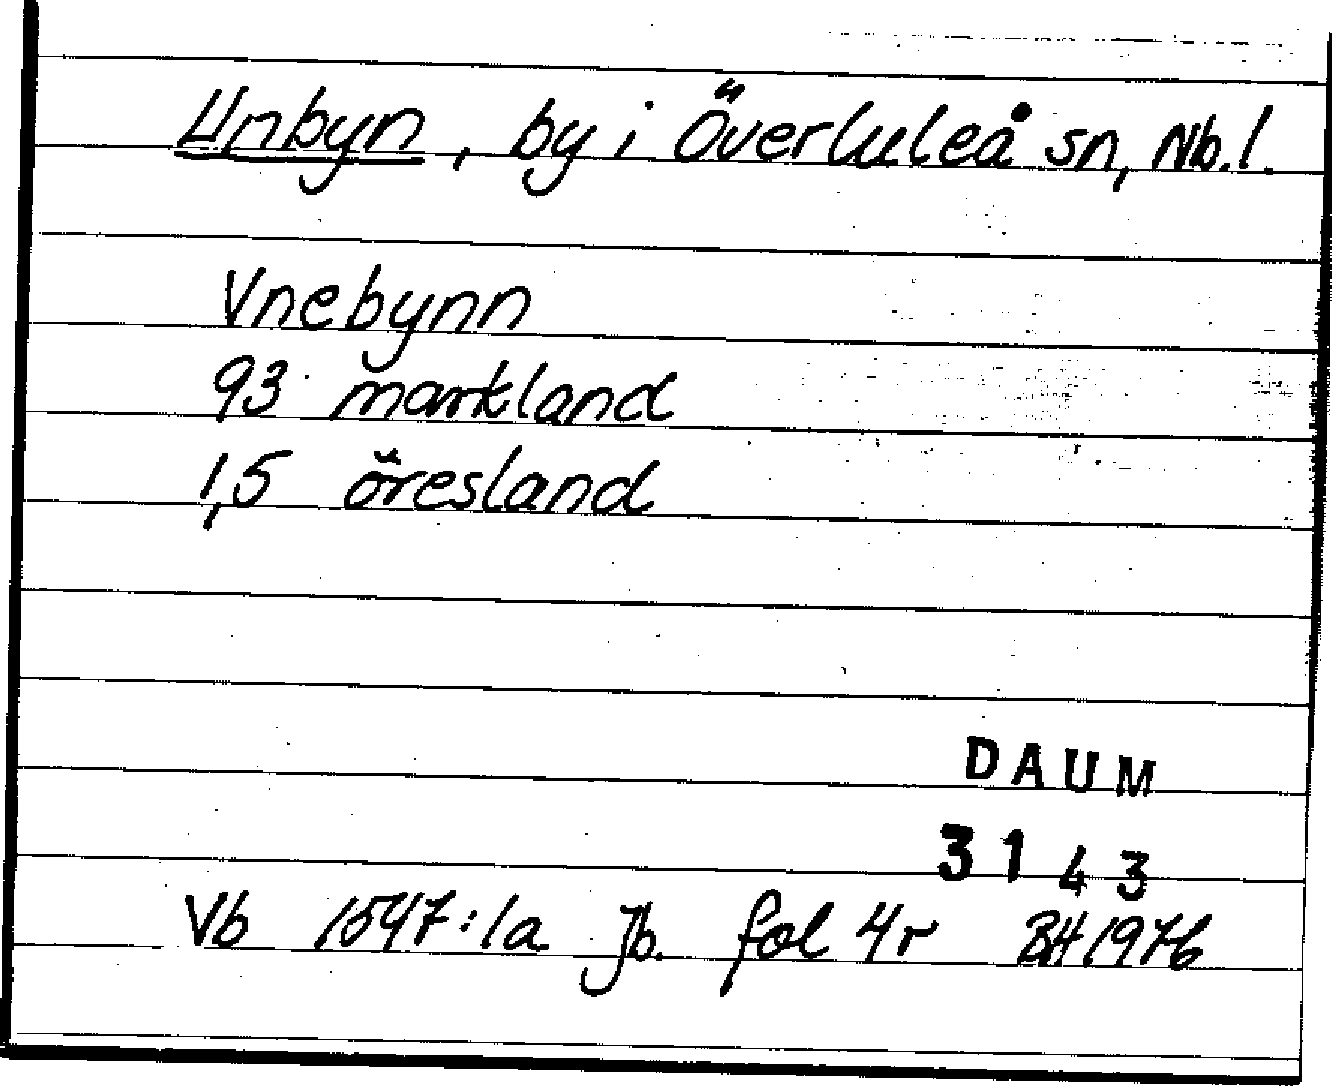 Unbyn, by i Överluleå sn, Nb.l.
Vnebynn
93 markland
1,5 öresland
DAUM
3143
Vb 1547:1a Jb. fol 4r BH 1976